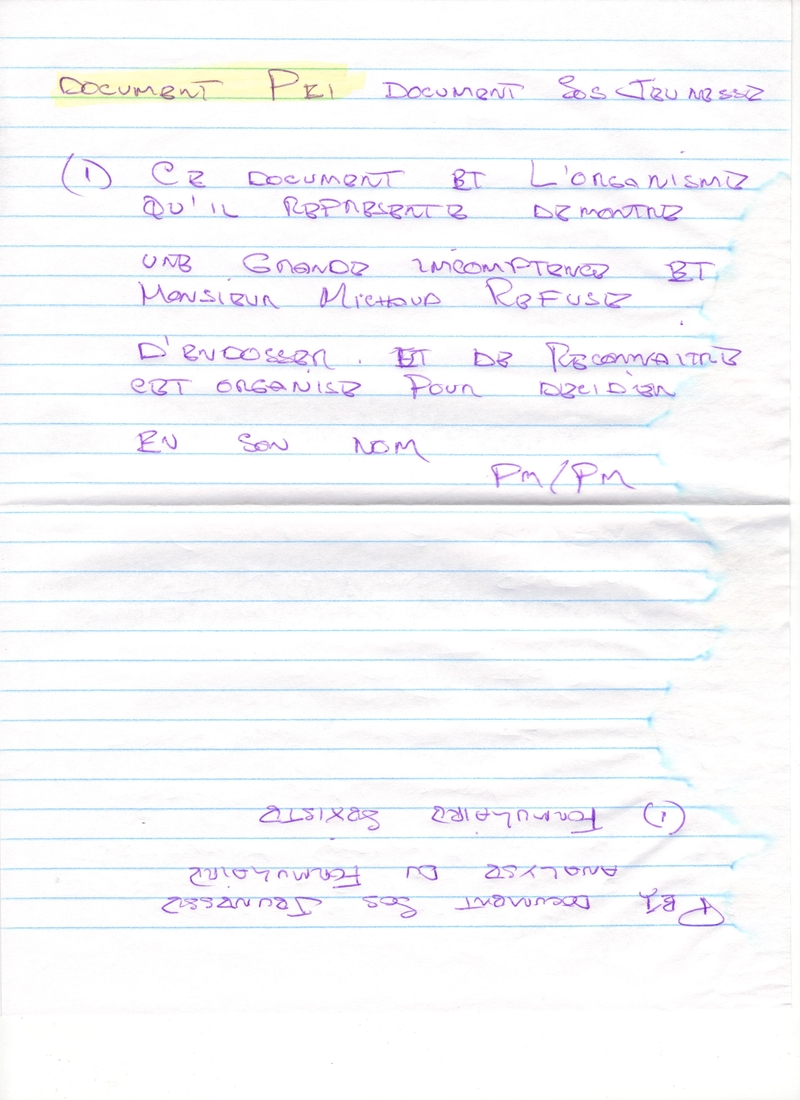 DOCUMENT PE1 DOCUMENT SOS JEUNESSE
(1) CE DOCUMENT ET L'ORGANISME
QU'IL REPRESENTE DEMONTRE
UNE GRANDE INCOMPTENCE ET
MONSIEUR MICHAUD REFUSE
D'ENDOSSER. ET DE RECONNAITRE
CET ORGANISE POUR DECIDER
EN SON NOM
PM/PM
PE1 DOCUMENT SOS JEUNESSE
ANALYSE DU FORMULAIRE
(1) FORMULAIRE SEXISTE